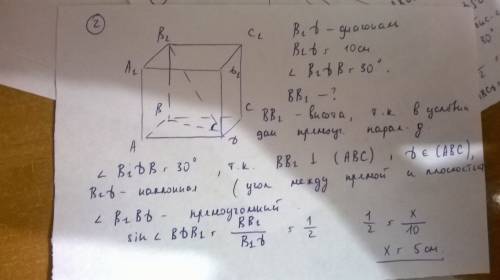 2
B₂ C₂
A₂ D₂
B C
A D
B₂D - диагональ
B₂D = 10см
∠ B₂DB = 30°.
BB₂ - ?
BB₂ - высота, т.к. в условии
дан прямоуг. парал.
∠ B₂DB = 30°, т.к. BB₂ ⊥ (ABC), D ∈ (ABC),
B₂D - наклонная (угол между прямой и плоскостью
∠ B₂BD - прямоугольный
sin ∠ BDB₂ = BB₂/B₂D = 1/2 1/2 = x/10
x = 5 см.